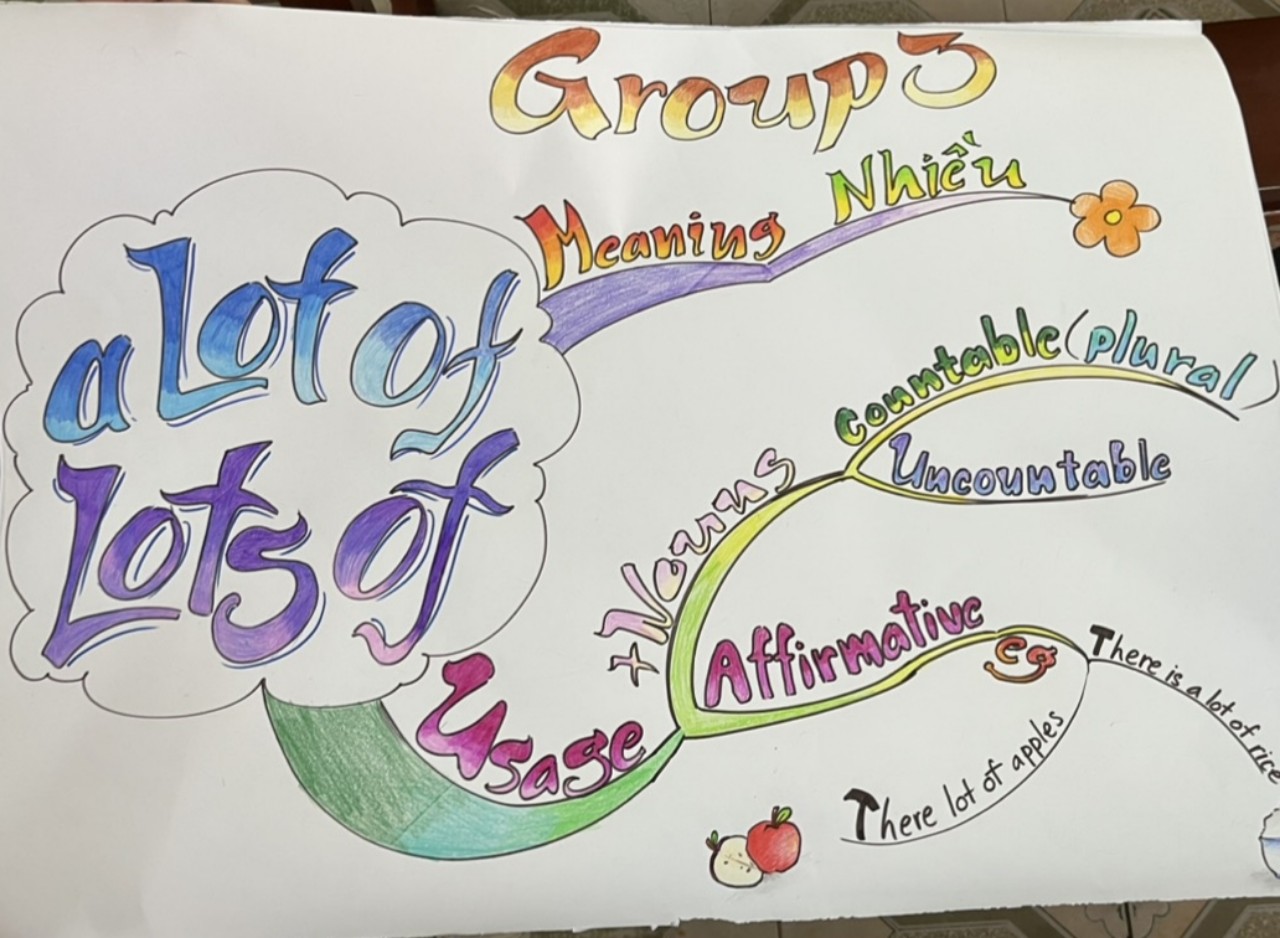 Group 3
a Lot of
Lots of
Meaning
Nhiều
Usage
+ Nouns
Countable (plural)
Uncountable
Affirmative
eg
There is a lot of rice
There lot of apples